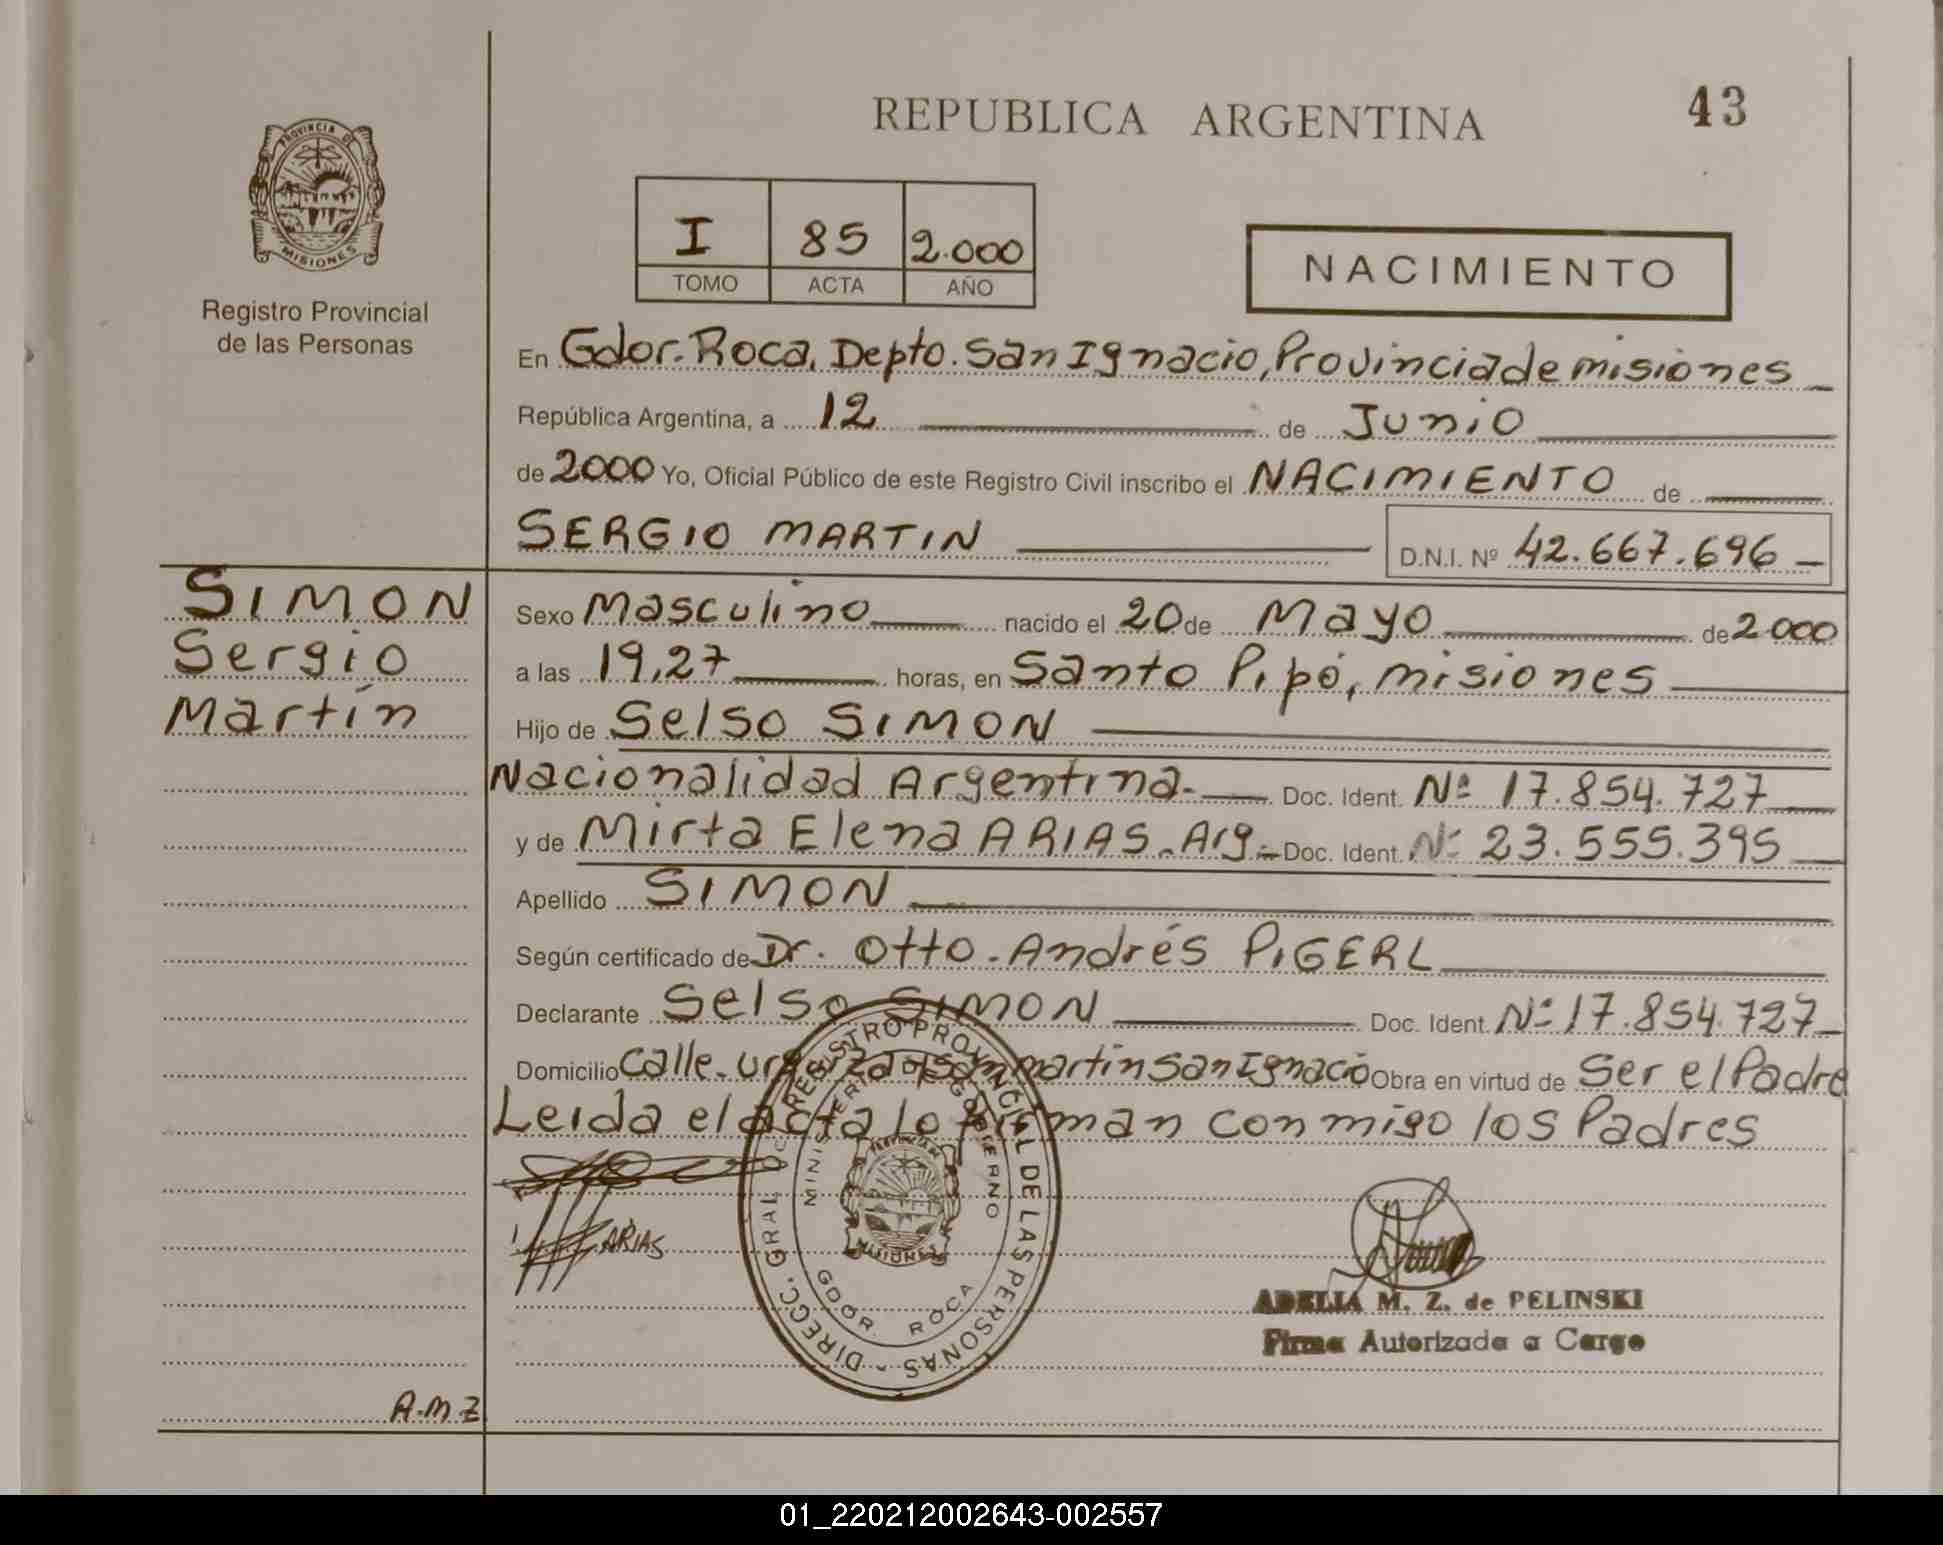 REPUBLICA ARGENTINA
43
PROVINCIA DE
MISIONES
Registro Provincial
de las Personas
I 85 2.000
TOMO ACTA AÑO
NACIMIENTO
En Gdor. Roca, Depto. San Ignacio, Provincia de misiones
República Argentina, a 12 de Junio
de 2000 Yo, Oficial Público de este Registro Civil inscribo el NACIMIENTO de
SERGIO MARTIN D.N.I. Nº 42.667.696
SIMON
Sergio
Martín
Sexo Masculino nacido el 20 de Mayo de 2000
a las 19,27 horas, en Santo Pipó, misiones
Hijo de Selso SIMON
Nacionalidad Argentina.- Doc. Ident. Nº 17.854.727
y de Mirta Elena ARIAS.-Arg.- Doc. Ident. Nº 23.555.395
Apellido SIMON
Según certificado de Dr. Otto. Andrés PIGERL
Declarante Selso SIMON Doc. Ident. Nº 17.854.727
Domicilio Calle. martin San Ignacio Obra en virtud de Ser el Padre
Leida el acta lo firman conmigo los Padres
ARIAS
DIRECC. GRAL DE REGISTRO PROVINCIAL DE LAS PERSONAS -
MINISTERIO DE GOBIERNO
PROVINCIA DE
MISIONES
GDOR. ROCA
ADELIA M. Z. de PELINSKI
Firma Autorizada a Cargo
A.M.Z
01_220212002643-002557